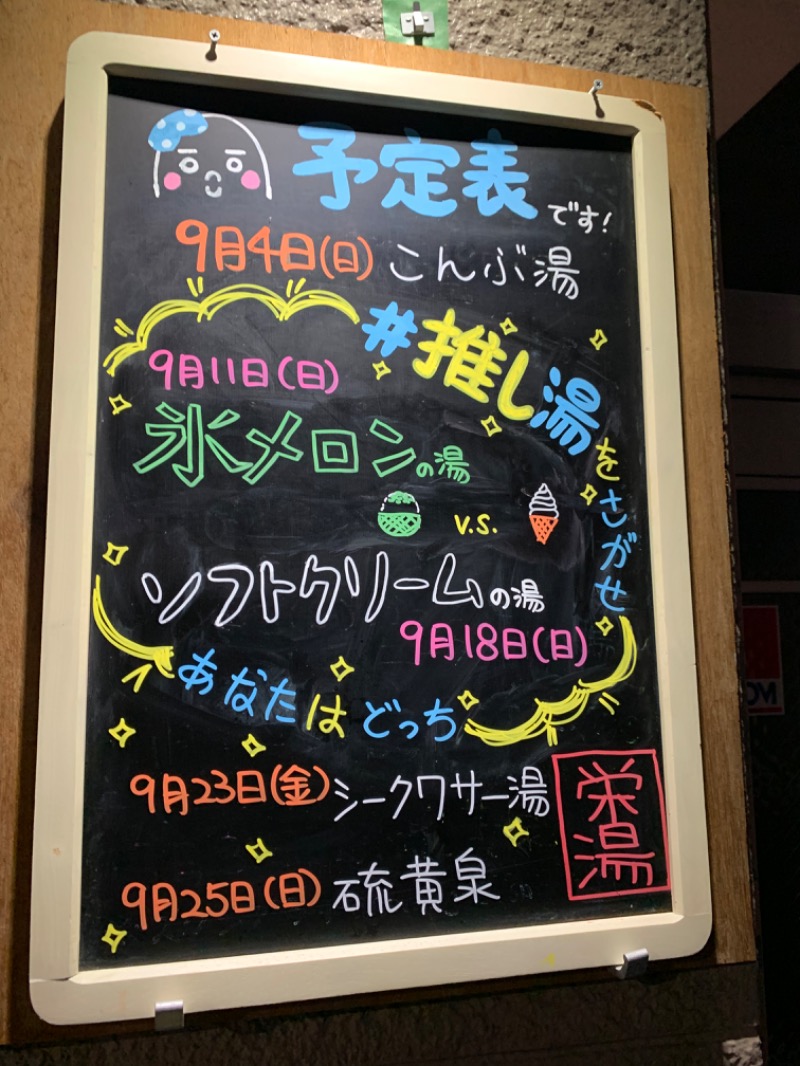 予定表です!
9月4日(日) こんぶ湯
#推し湯をさがせ
9月11日(日)
氷メロンの湯
V.S.
ソフトクリームの湯
9月18日(日)
あなたはどっち
9月23日(金) シークワサー湯
9月25日(日) 硫黄泉
栄湯